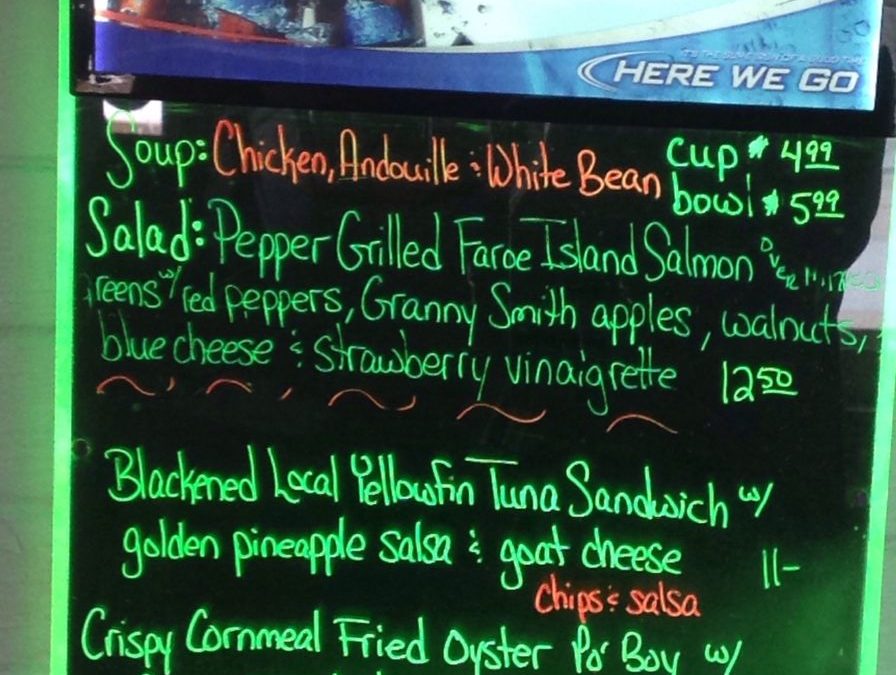 HERE WE GO
Soup: Chicken, Andouille & White Bean cup $ 4.99
bowl $ 5.99
Salad: Pepper Grilled Faroe Island Salmon over
greens w/ red peppers, Granny Smith apples, walnuts,
blue cheese & strawberry vinaigrette 12.50
Blackened Local Yellowfin Tuna Sandwich w/
golden pineapple salsa & goat cheese 11-
chips & salsa
Crispy Cornmeal Fried Oyster Po' Boy w/